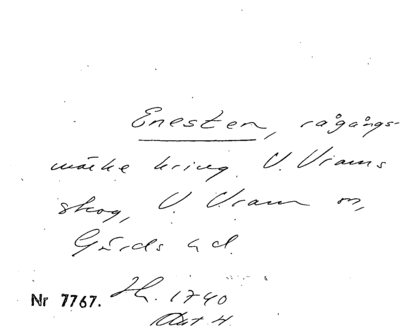 Enesten, rågångs-
märke kring V. Vrams
skog, V. Vram sn,
Gärds hd.
Nr 7767. Hh. 1740
Akt 4